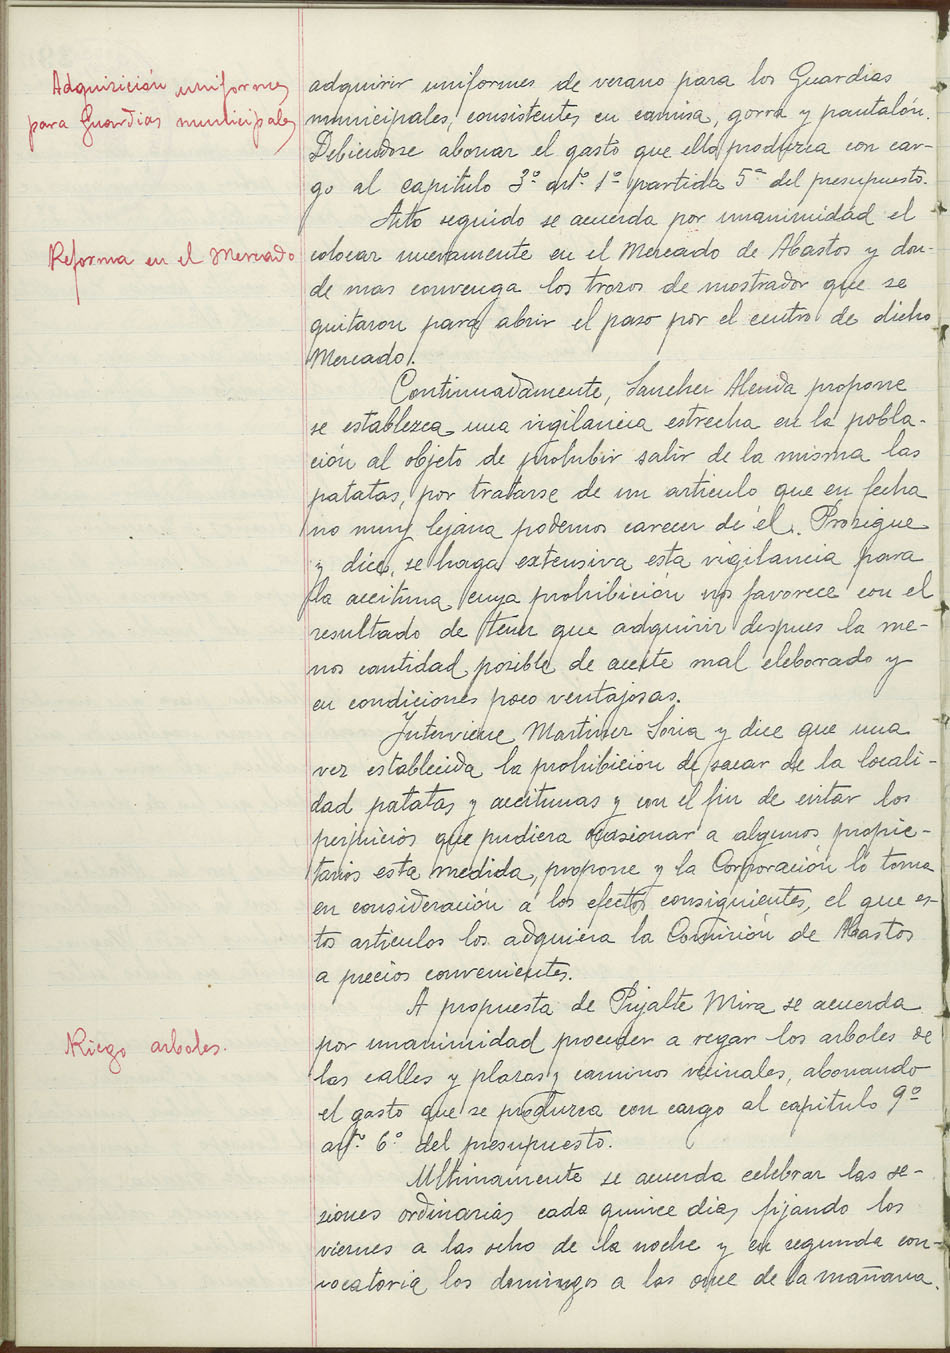 Adquisición uniformes
para Guardias municipales
adquirir uniformes de verano para los Guardias
municipales, consistentes en camisa, gorra y pantalón.
Debiendose abonar el gasto que ello produzca con car-
go al capitulo 3º artº 1º partida 5ª del presupuesto.
Acto seguido se acuerda por unanimidad el
Reforma en el Mercado
colocar nuevamente en el Mercado de Abastos y don-
de mas convenga los trozos de mostrador que se
quitaron para abrir el paso por el centro de dicho
Mercado.
Continuadamente, Sanchez Alenda propone
se establezca una vigilancia estrecha en la pobla-
ción al objeto de prohibir salir de la misma las
patatas, por tratarse de un articulo que en fecha
no muy lejana podemos carecer de él. Prosigue
y dice, se haga extensiva esta vigilancia para
la aceituna cuya prohibición nos favorece con el
resultado de tener que adquirir despues la me-
nos cantidad posible de aceite mal eleborado y
en condiciones poco ventajosas.
Interviene Martinez Soria y dice que una
vez establecida la prohibición de sacar de la locali-
dad patatas y aceitunas y con el fin de evitar los
perjuicios que pudiera ocasionar a algunos propie-
tarios esta medida, propone y la Corporación lo toma
en consideración a los efectos consiguientes, el que es-
tos articulos los adquiera la Comisión de Abastos
a precios convenientes.
A propuesta de Pujalte Mira se acuerda
Riego arboles.
por unanimidad proceder a regar los arboles de
las calles y plazas y caminos vecinales, abonando
el gasto que se produzca con cargo al capitulo 9º
artº 6º del presupuesto.
Ultimamente se acuerda celebrar las se-
siones ordinarias cada quince dias fijando los
viernes a las ocho de la noche y en segunda con-
vocatoria los domingos a las once de la mañana.